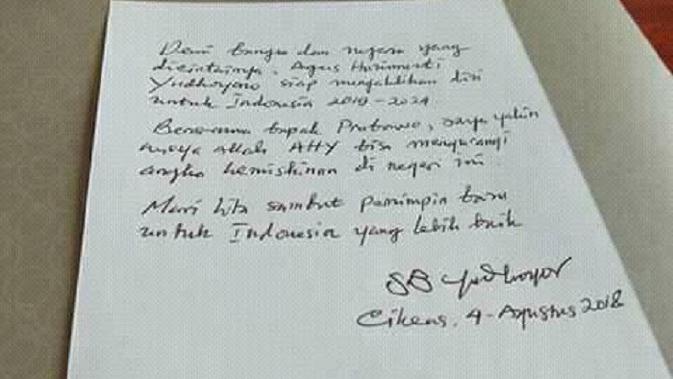 Demi bangsa dan negara yang
dicintainya, Agus Harimurti
Yudhoyono siap mengabdikan diri
untuk Indonesia 2019-2024
Bersama bapak Prabowo, saya yakin
insya allah AHY bisa mengurangi
angka kemiskinan di negeri ini
Mari kita sambut pemimpin baru
untuk Indonesia yang lebih baik
SB Yudhoyono
Cikeas, 4-Agustus 2018